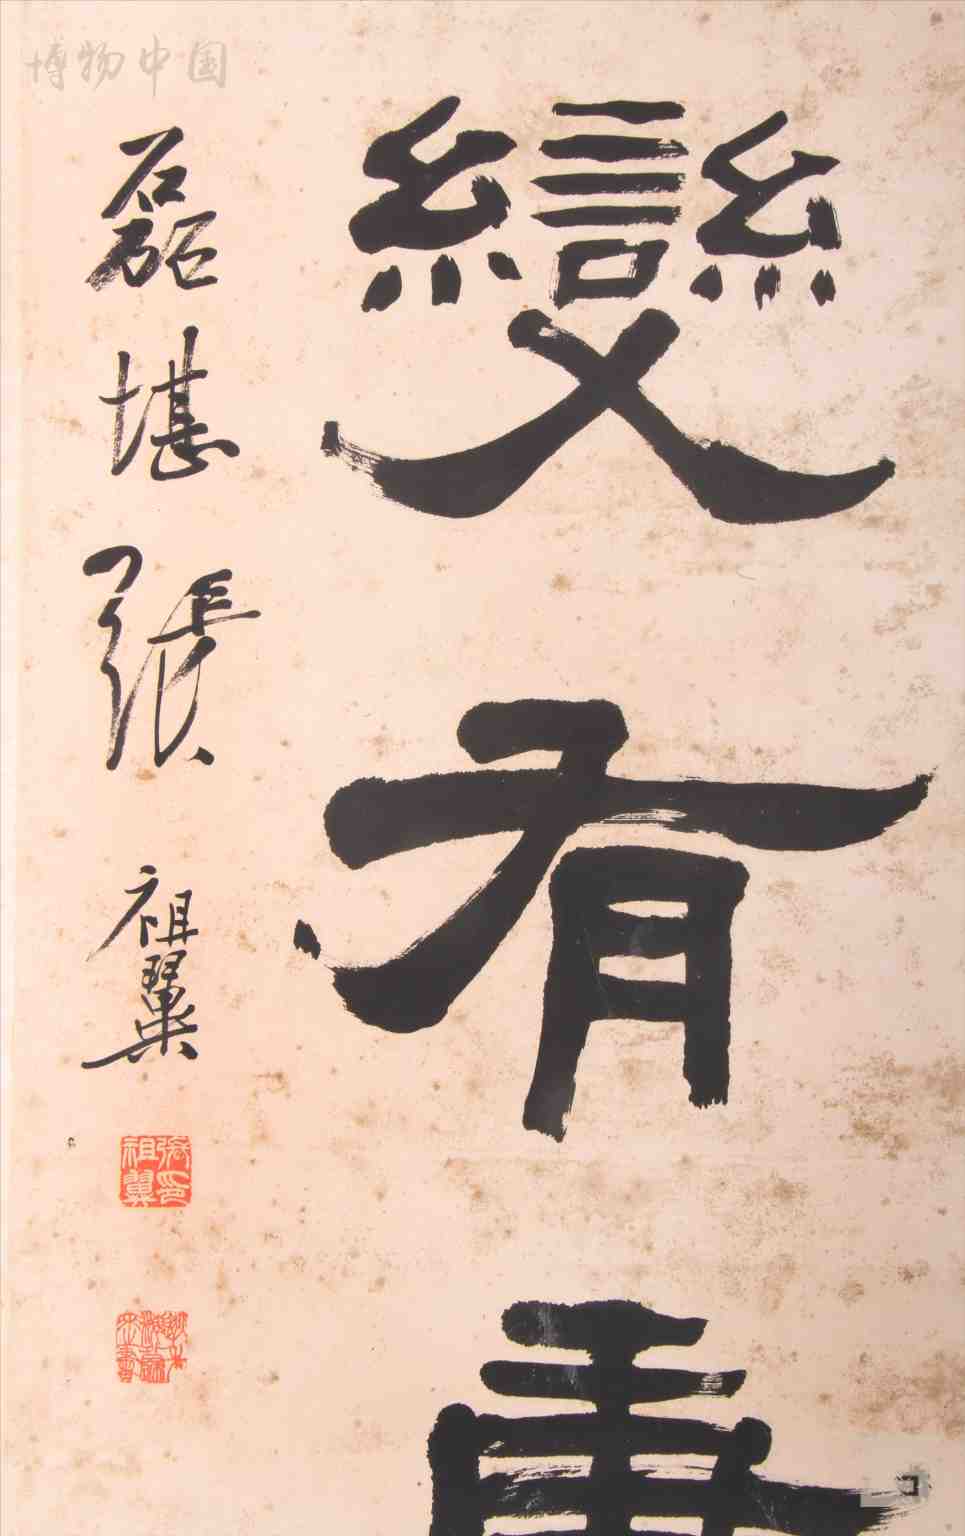 博物中国
變有
磊堪張祖翼
張印祖翼